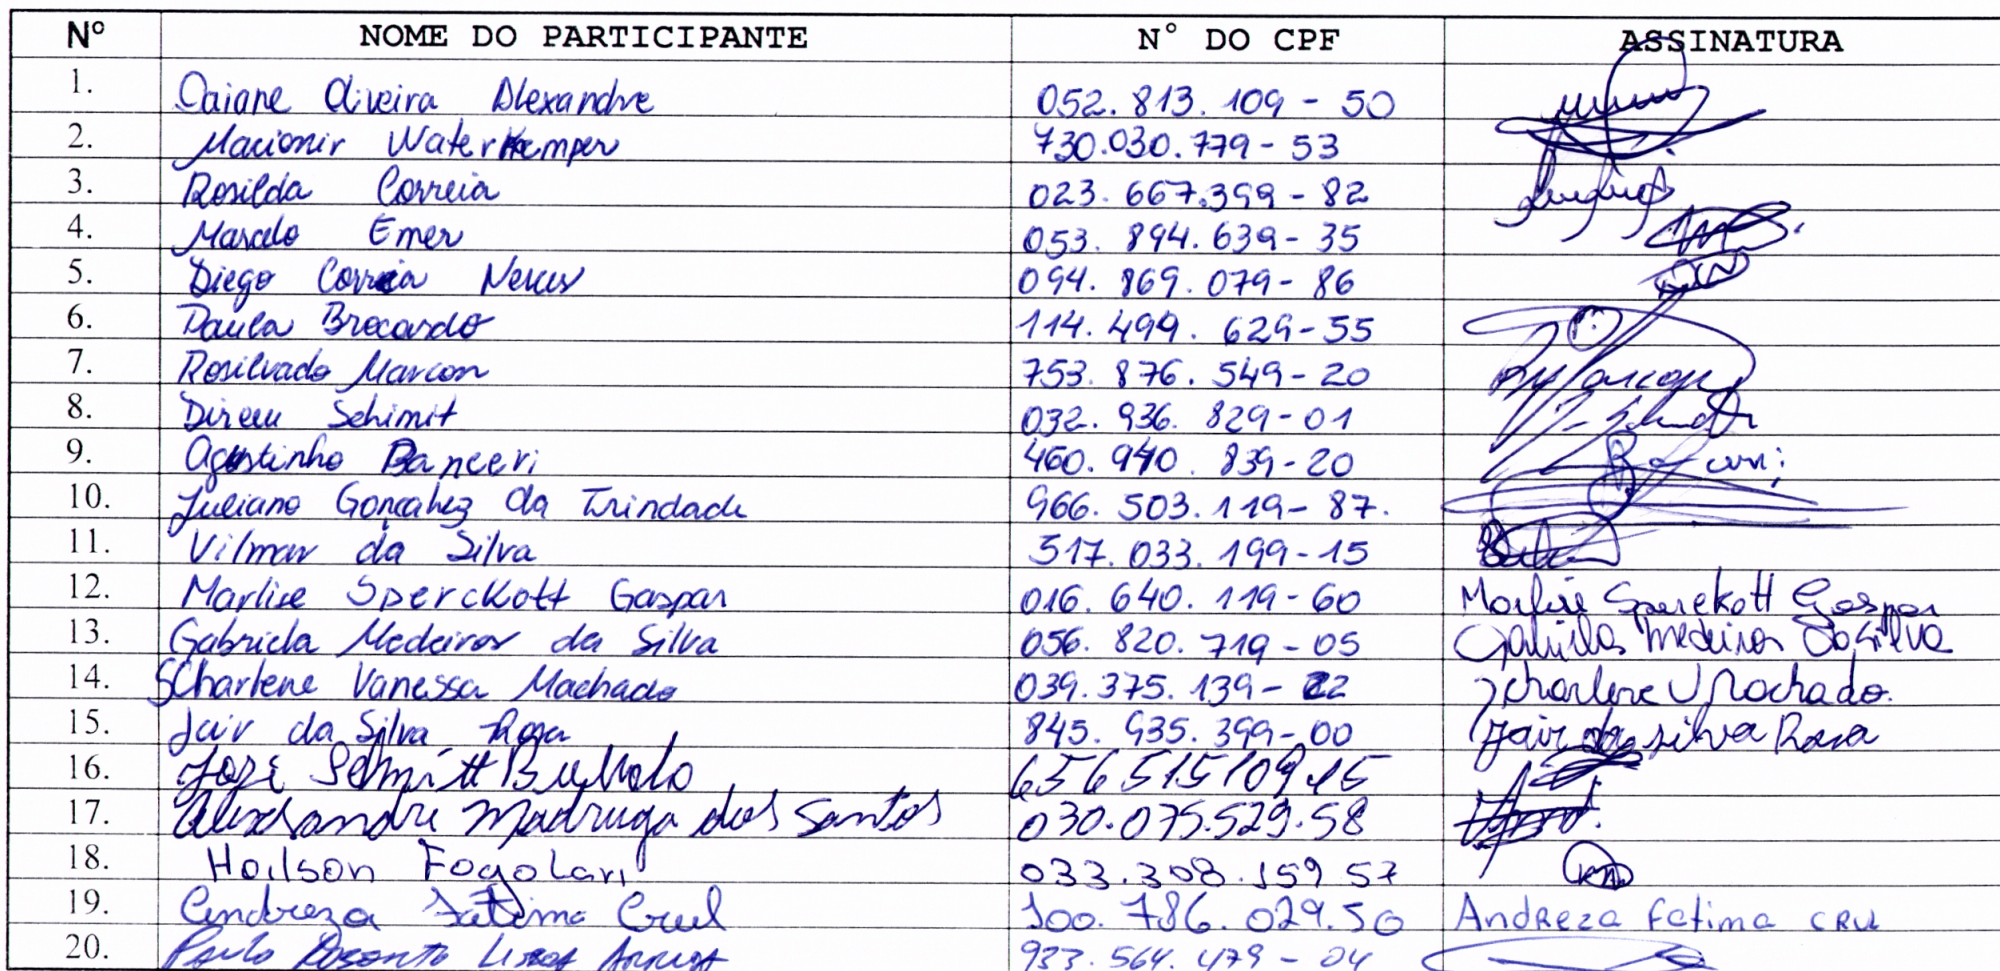 Nº NOME DO PARTICIPANTE N° DO CPF ASSINATURA
1. Daiane Oliveira Alexandre 052.813.109-50
2. Macionir Waterkemper 730.030.779-53
3. Rosilda Correia 023.667.399-82
4. Marcelo Emer 053.894.639-35
5. Diego Correia Neves 094.869.079-86
6. Paula Brocardo 114.499.629-55
7. Rosilvado Marcon 753.876.549-20
8. Dirceu Schimit 032.936.829-01
9. Agustinho Banceri 460.940.839-20
10. Juliano Gonçalvez da Trindade 966.503.119-87.
11. Vilmar da Silva 517.033.199-15
12. Marlise Sperckott Gaspar 016.640.119-60 Marlise Sperckott Gaspar
13. Gabriela Medeiros da Silva 056.820.719-05 Gabriela Medeiros Da Silva
14. SCharlene Vanessa Machado 039.375.139-22 Scharlene V Machado.
15. Jair da Silva Rosa 845.935.399-00 Jair da silva Rosa
16. José Schmitt 656515109.15
17. Alexsandre Madruga dos Santos 030.075.529.58
18. Hoilson Fogolari 033.308.159 57
19. Andreza Fatima Crul 100.786.029.50 Andreza fatima CRUL
20. Paulo 933.564.479-04